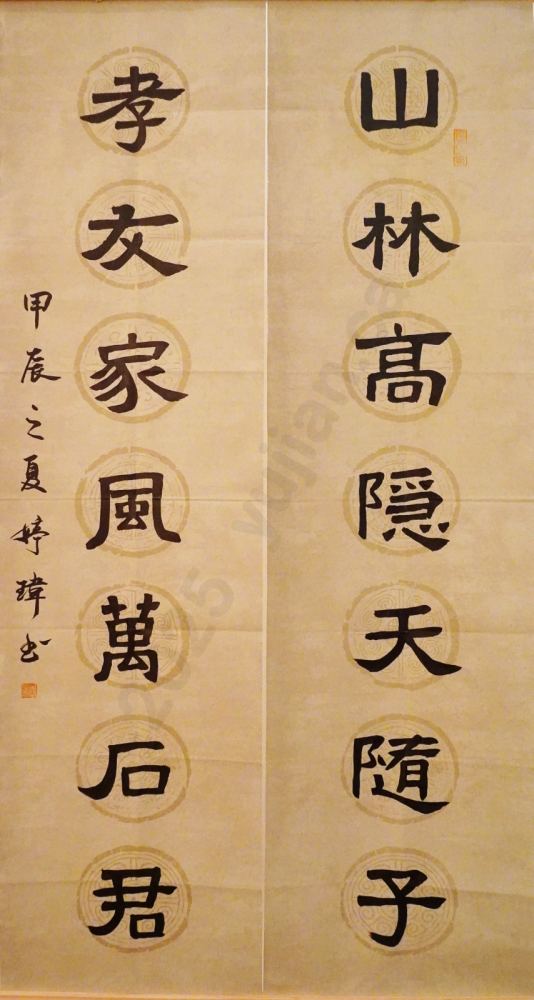 山林高隠天隨子
孝友家風萬石君
甲辰之夏婷瑋书
2025 yujian.ca